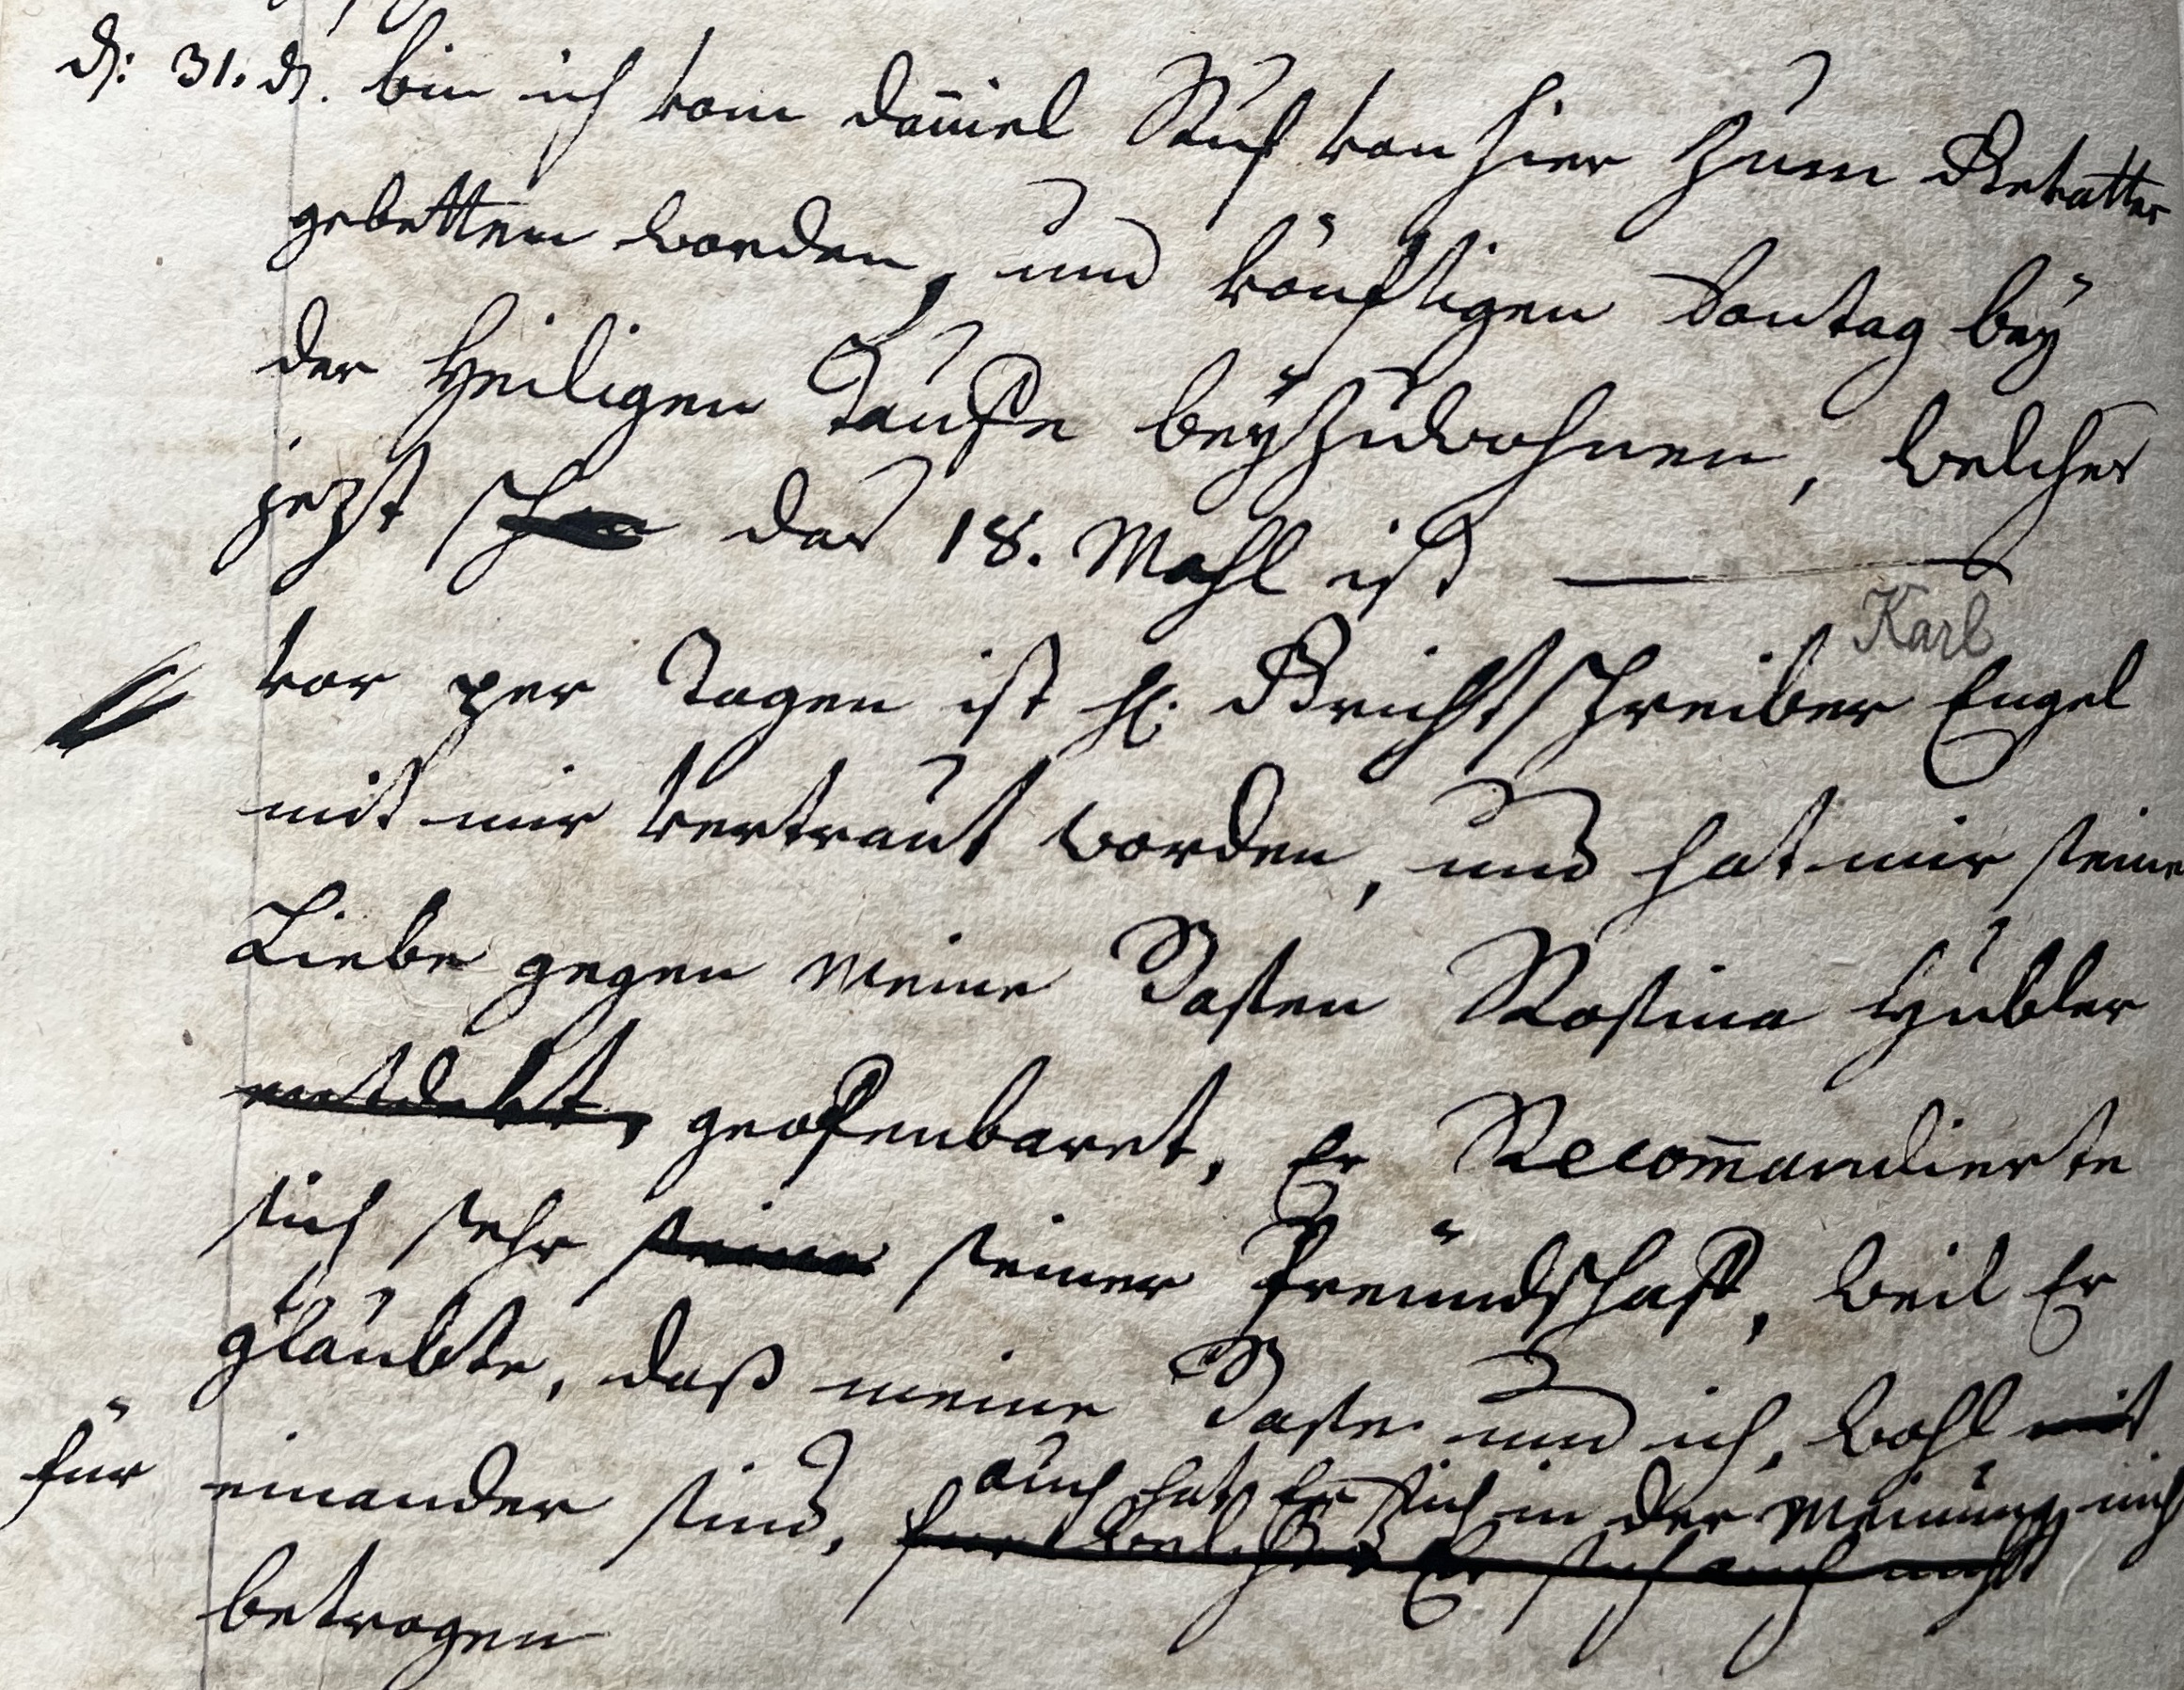 d: 31. d. bin ich vom Daniel Ruf von hier zum Gevatter
gebetten worden, und könftigen Sontag bey
der Heiligen Taufe beyzuwohnen, welches
jezt schon das 18. Mahl ist —
Karl
vor per Tagen ist H. Grichtschreiber Engel
mit mir vertraut worden, und hat mir seine
Liebe gegen meine Basen Rosina Hübler
entdekt, geofenbaret, Er Recom̄andierte
sich sehr seine seiner Freündschaft, weil Er
glaubte, daß meine Base und ich, wohl mit
für einander sind, auch hat Er sich in der Meinung nich
für welches Er sich auch nicht
betrogen